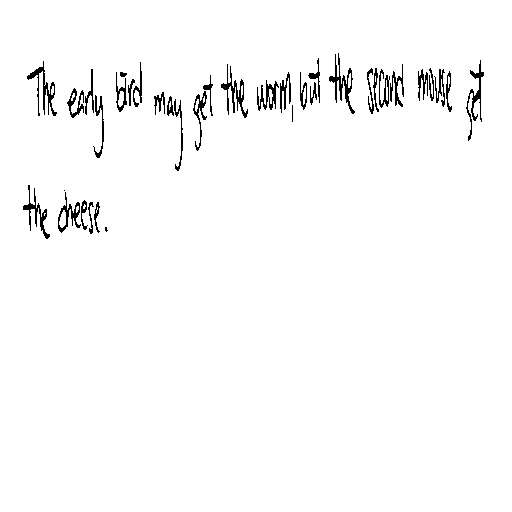 The early bird may get the worm, but the second mouse get
the cheese.